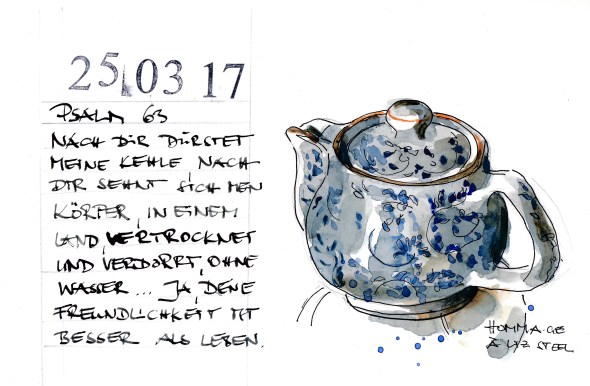 25.03 17
PSALM 63
NACH DIR DÜRSTET
MEINE KEHLE NACH
DIR SEHNT SICH MEN
KÖRPER, IN EINEM
LAND, VERTROCKNET
UND VERDORRT, OHNE
WASSER... JA, DEINE
FREUNDLICHKEIT IST
BESSER ALS LEBEN.
HOMMAGE
À LIZ STEEL